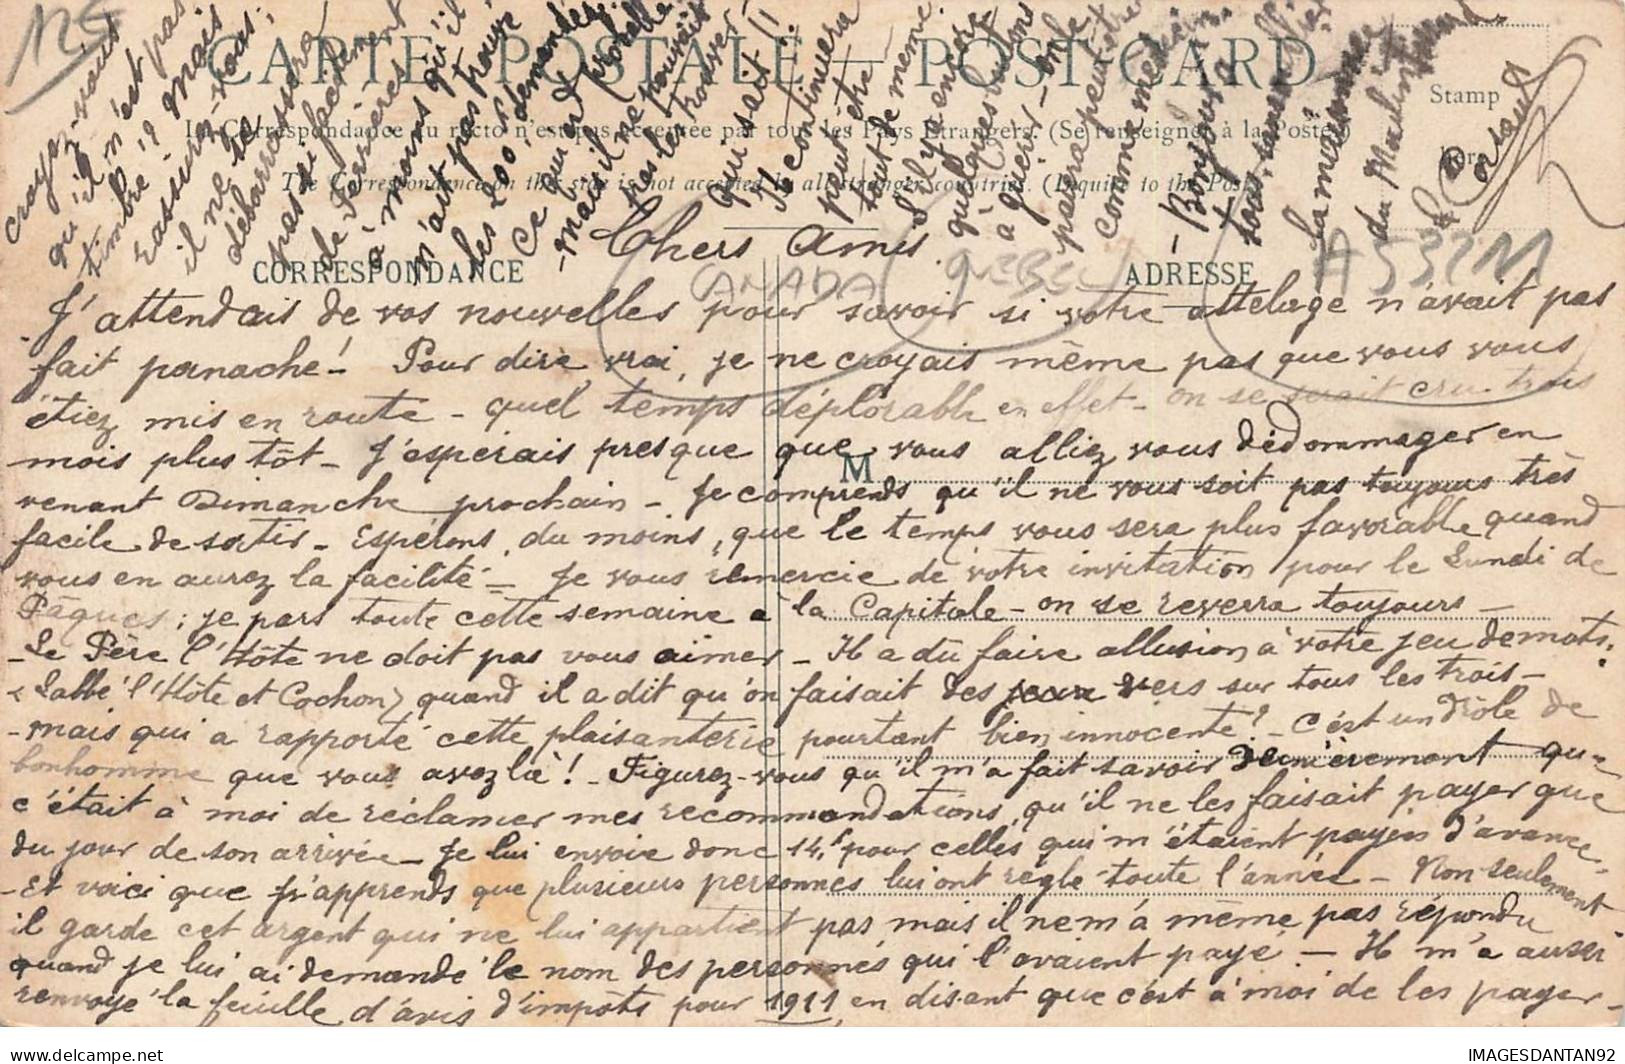 12€
CARTE POSTALE — POST CARD
La Correspondance au recto n'est pas acceptée par tous les Pays Etrangers. (Se renseigner à la Poste)
The Correspondence on this side is not accepted by all stranger countries. (Inquire to the Post
Stamp
CORRESPONDANCE
ADRESSE
M
CANADA QUEBEC A532M
Chers Amis.
J'attendais de vos nouvelles pour savoir si votre attelage n'avait pas
fait panache! Pour dire vrai, je ne croyais même pas que vous vous
étiez mis en route - quel temps déplorable en effet - on se serait cru trois
mois plus tôt - J'espérais presque que vous alliez vous dédommager en
venant Dimanche prochain - Je comprends qu'il ne vous soit pas toujours très
facile de sortir - Espérons, du moins, que le temps vous sera plus favorable quand
vous en aurez la facilité - Je vous remercie de votre invitation pour le Lundi de
Pâques; je pars toute cette semaine à la Capitale - on se reverra toujours -
- Le Père l'Hôte ne doit pas vous aimer - Il a dû faire allusion à votre jeu de mots:
(Labbé l'Hôte et Cochon) quand il a dit qu'on faisait des vers sur tous les trois -
- mais qui a rapporté cette plaisanterie pourtant bien innocente? - C'est un drôle de
bonhomme que vous avez là! - Figurez-vous qu'il m'a fait savoir dernièrement que
c'était à moi de réclamer mes recommandations, qu'il ne les faisait payer que
du jour de son arrivée - Je lui envoie donc 14f pour celles qui m'étaient payées d'avance -
- Et voici que j'apprends que plusieurs personnes lui ont réglé toute l'année - Non seulement
il garde cet argent qui ne lui appartient pas mais il ne m'a même pas répondu
quand je lui ai demandé le nom des personnes qui l'avaient payé. - Il m'a aussi
renvoyé la feuille d'avis d'impôts pour 1911, en disant que c'est à moi de les payer -
croyez-vous
qu'il n'est pas
timbré? Mais
rassurez-vous;
il ne se
débarrassera
pas si facilement
de Ferrières
à moins qu'il
n'ait pas trouvé
les 200f demandés.
Ce qui est
- mais il ne pourrait
pas les trouver
qui sait!!
Je continuerai
peut être
tout de même.
S'il y a encore
quelques mots
à
paraîtra peut être
comme
- Bonjour à
tous, sans
la maisonnée
du Moulin